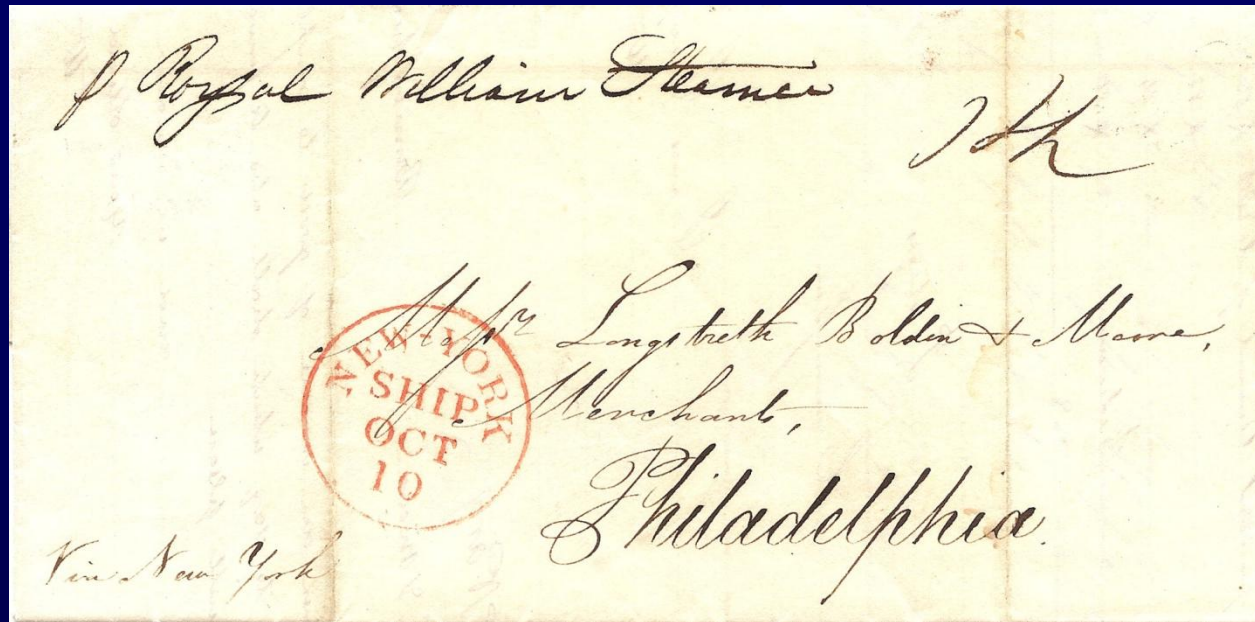 p Royal William Steamer
14½
Messrs Longstreth Bolden & Moore,
Merchants,
Philadelphia.
NEW YORK
SHIP
OCT
10
Via New York